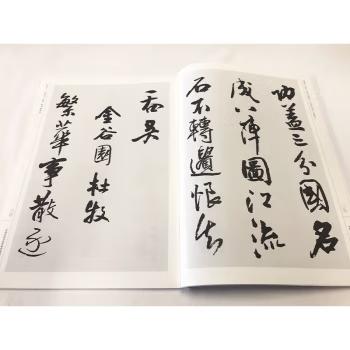 功蓋三分國名
成八陣圖江流
石不轉遺恨失
吞吳
金谷園 杜牧
繁華事散逐